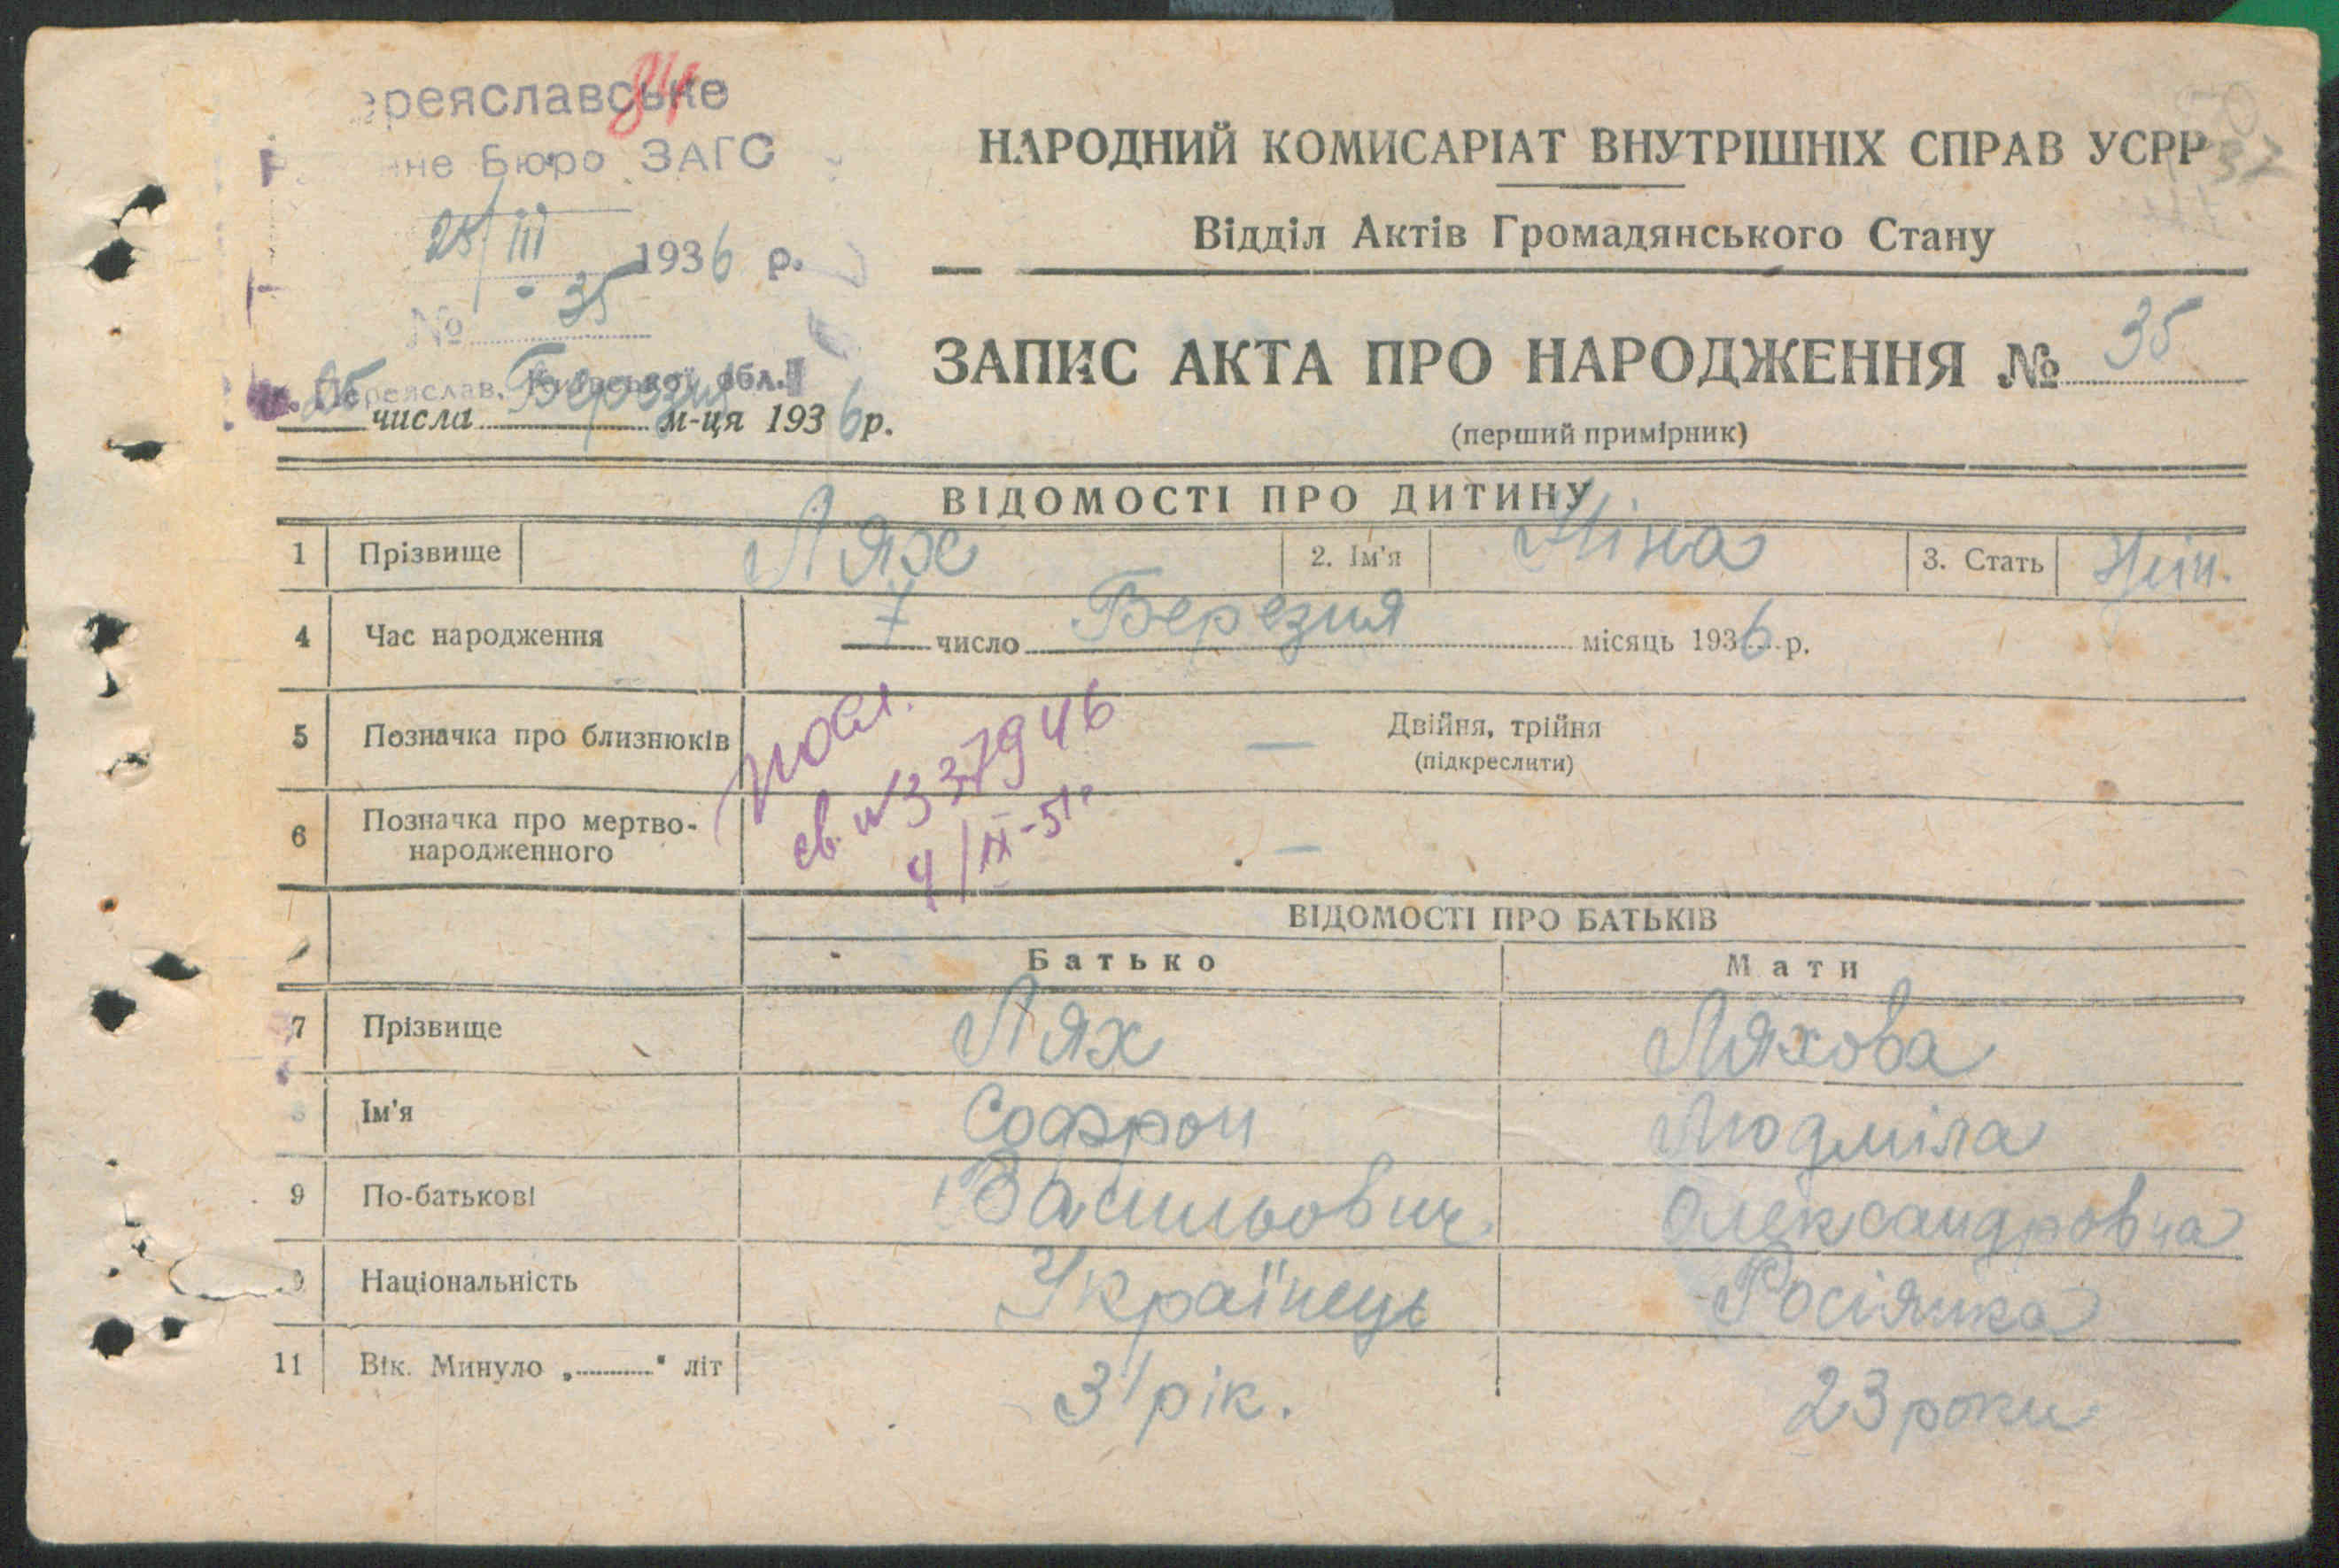 ереяславське
84
не Бюро ЗАГС
25/III 1936 р.
№ 35
м. Переяслав, Київської обл.
25 числа Березня м-ця 1936 р.
НАРОДНИЙ КОМИСАРІАТ ВНУТРІШНІХ СПРАВ УСРР
37
Відділ Актів Громадянського Стану
ЗАПИС АКТА ПРО НАРОДЖЕННЯ № 35
(перший примірник)
ВІДОМОСТІ ПРО ДИТИНУ
1 Прізвище Лях 2. Ім'я Ніна 3. Стать Жін.
4 Час народження 7 число Березня місяць 1936 р.
5 Позначка про близнюків — Двійня, трійня
(підкреслити)
6 Позначка про мертво-
народженного —
св. №337946
4/IX-51г
ВІДОМОСТІ ПРО БАТЬКІВ
Батько Мати
7 Прізвище Лях Ляхова
8 Ім'я Софрон Людміла
9 По-батькові Васильович Олександровна
Національність Українець Росіянка
11 Вік. Минуло „ " літ 31 рік. 23 роки